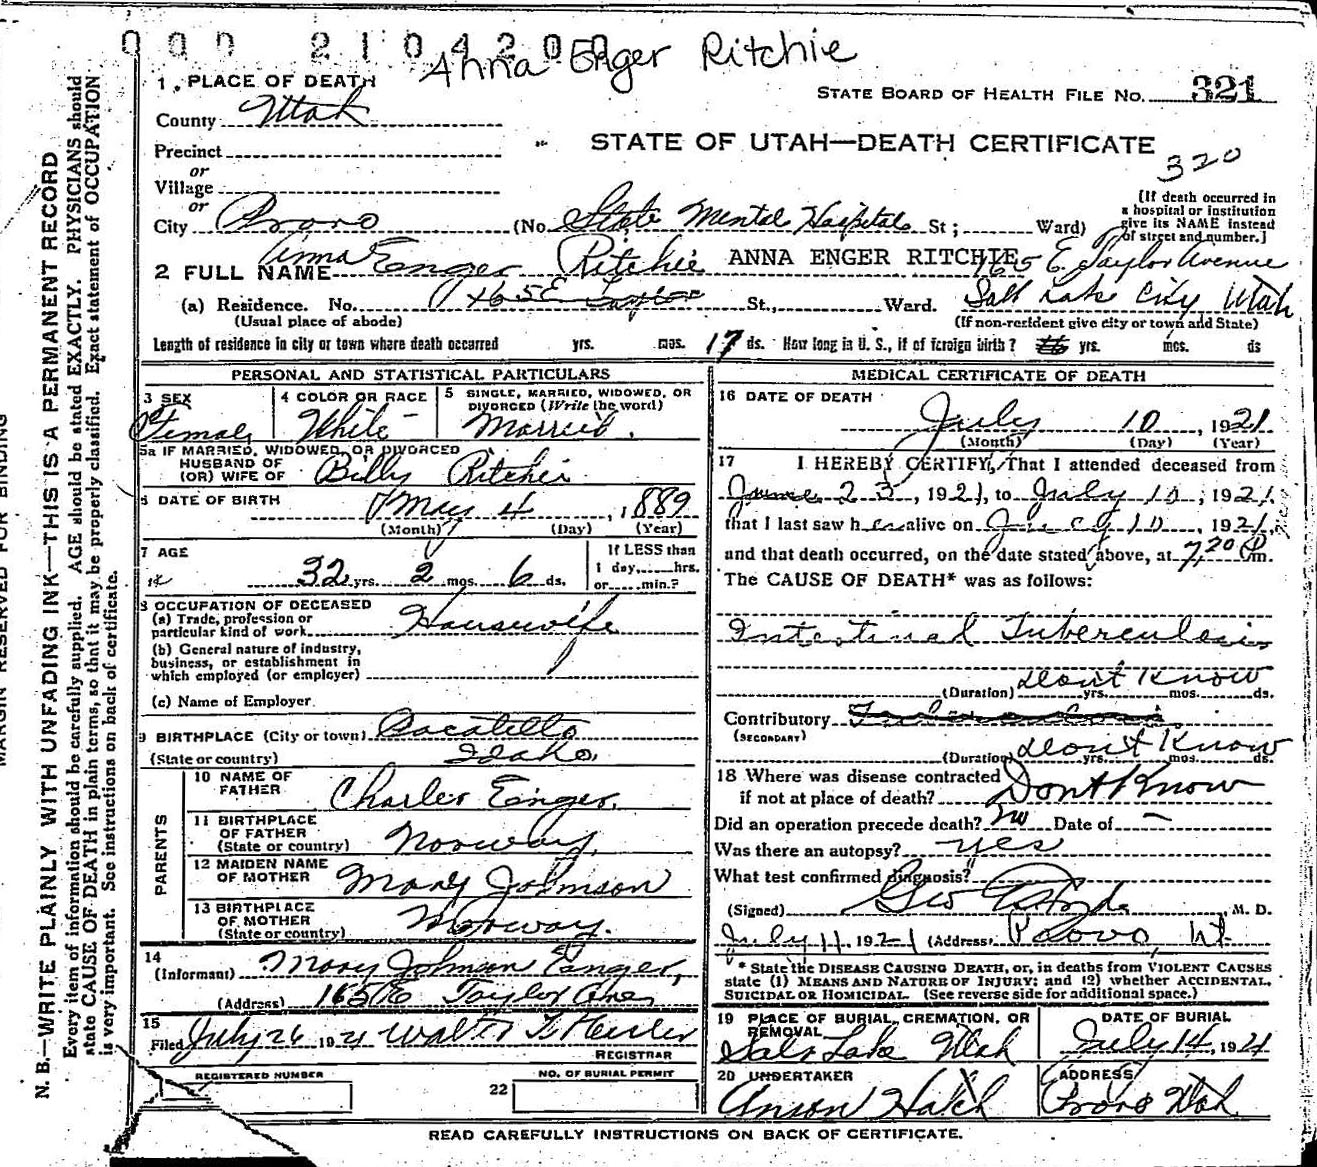 000 2104200
Anna Enger Ritchie
1. PLACE OF DEATH
STATE BOARD OF HEALTH FILE NO. 321
County Utah
STATE OF UTAH—DEATH CERTIFICATE
320
Precinct
or
Village
or
City Provo (No. State Mental Hospital St; Ward)
[If death occurred in
a hospital or institution
give its NAME instead
of street and number.]
2 FULL NAME Anna Enger Ritchie ANNA ENGER RITCHIE
165 E. Taylor Avenue
(a) Residence. No. 165 E Taylor St., Ward. Salt Lake City Utah
(Usual place of abode) (If non-resident give city or town and State)
Length of residence in city or town where death occurred yrs. mos. 17 ds. How long in U. S., if of foreign birth? yrs. mos. ds
PERSONAL AND STATISTICAL PARTICULARS
3 SEX
Female
4 COLOR OR RACE
White
5 SINGLE, MARRIED, WIDOWED, OR
DIVORCED (Write the word)
Married.
5a IF MARRIED, WIDOWED, OR DIVORCED
HUSBAND OF
(OR) WIFE OF Billy Ritchie
6 DATE OF BIRTH May 4, 1889
(Month) (Day) (Year)
7 AGE
32 yrs. 2 mos. 6 ds.
If LESS than
1 day, hrs.
or min.?
8 OCCUPATION OF DECEASED
(a) Trade, profession or
particular kind of work Housewife
(b) General nature of industry,
business, or establishment in
which employed (or employer)
(c) Name of Employer
9 BIRTHPLACE (City or town) Pocatello
(State or country) Idaho.
PARENTS
10 NAME OF
FATHER Charles Enger.
11 BIRTHPLACE
OF FATHER
(State or country) Norway.
12 MAIDEN NAME
OF MOTHER Mary Johnson
13 BIRTHPLACE
OF MOTHER
(State or country) Norway.
14
(Informant) Mary Johnson Enger,
(Address) 165 E Taylor Ave,
15
Filed July 26 1921 Walter T. Hasler
REGISTRAR
REGISTERED NUMBER
22
NO. OF BURIAL PERMIT
MEDICAL CERTIFICATE OF DEATH
16 DATE OF DEATH
July 10, 1921
(Month) (Day) (Year)
17 I HEREBY CERTIFY, That I attended deceased from
June 23, 1921, to July 10, 1921
that I last saw her alive on July 10, 1921,
and that death occurred, on the date stated above, at 7,20 Pm.
The CAUSE OF DEATH* was as follows:
Intestinal Tuberculosis
(Duration) dont Know yrs. mos. ds.
Contributory Tuberculosis
(SECONDARY)
(Duration) dont Know yrs. mos. ds.
18 Where was disease contracted
if not at place of death? Dont Know
Did an operation precede death? no Date of —
Was there an autopsy? yes
What test confirmed diagnosis?
(Signed) Geo M. D.
July 11, 1921 (Address) Provo, Ut.
* State the DISEASE CAUSING DEATH, or, in deaths from VIOLENT CAUSES
state (1) MEANS AND NATURE OF INJURY; and (2) whether ACCIDENTAL,
SUICIDAL OR HOMICIDAL. (See reverse side for additional space.)
19 PLACE OF BURIAL, CREMATION, OR
REMOVAL
Salt Lake Utah
DATE OF BURIAL
July 14, 1921
20 UNDERTAKER
Anson Hatch
ADDRESS
Provo Utah
READ CAREFULLY INSTRUCTIONS ON BACK OF CERTIFICATE.
MARGIN RESERVED FOR BINDING
N. B.—WRITE PLAINLY WITH UNFADING INK—THIS IS A PERMANENT RECORD
Every item of information should be carefully supplied. AGE should be stated EXACTLY. PHYSICIANS should
state CAUSE OF DEATH in plain terms, so that it may be properly classified. Exact statement of OCCUPATION
is very important. See instructions on back of certificate.